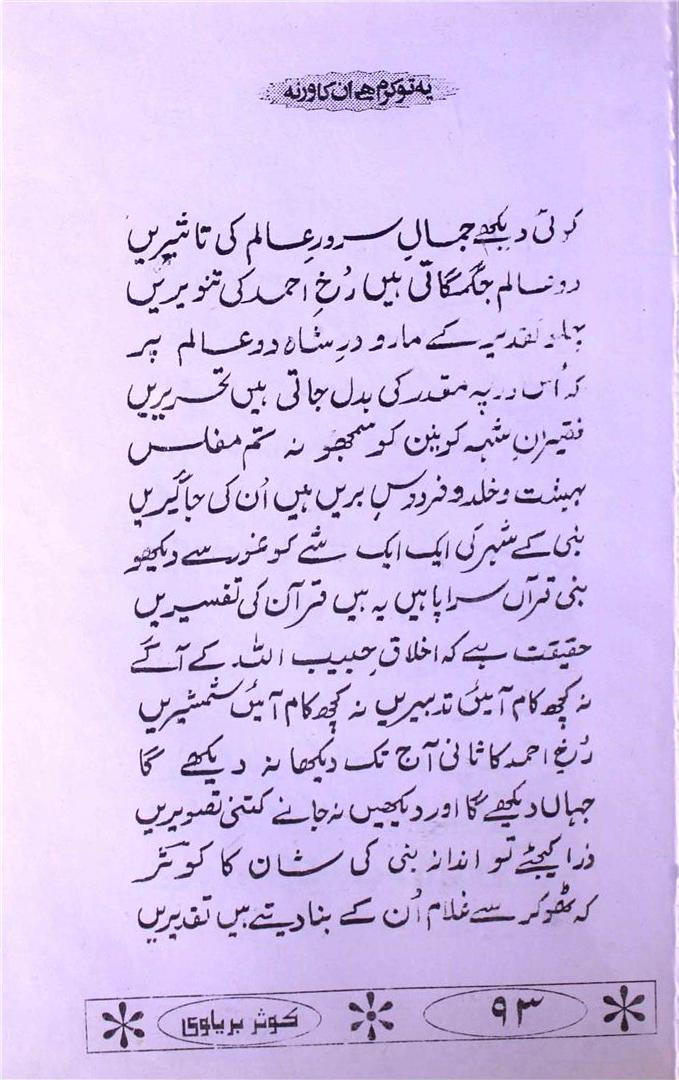 یہ تو کرم ہے ان کا ورنہ
کوئی دیکھے جمالِ سرورِ عالم کی تاثیریں
دو عالم جگمگاتی ہیں رُخِ احمد کی تنویریں
چلو تقدیر کے مارو درِ شاہ دو عالم پر
کہ اُس در پہ مقدر کی بدل جاتی ہیں تحریریں
فقیرانِ شہہ کونین کو سمجھو نہ تم مفلس
بہشت و خلد و فردوسِ بریں ہیں اُن کی جاگیریں
نبی کے شہر کی ایک ایک شے کو غور سے دیکھو
نبی قرآں سراپا ہیں یہ ہیں قرآن کی تفسیریں
حقیقت ہے کہ اخلاقِ حبیب اللہ کے آگے
نہ کچھ کام آئیں تدبیریں نہ کچھ کام آئیں شمشیریں
رُخِ احمد کا ثانی آج تک دیکھا نہ دیکھے گا
جہاں دیکھے گا اور دیکھیں نہ جانے کتنی تصویریں
ذرا کیجئے تو اندازہ نبی کی شان کا کوثر
کہ ٹھوکر سے غلام اُن کے بنا دیتے ہیں تقدیریں
۹۳
کوثر بریاوی